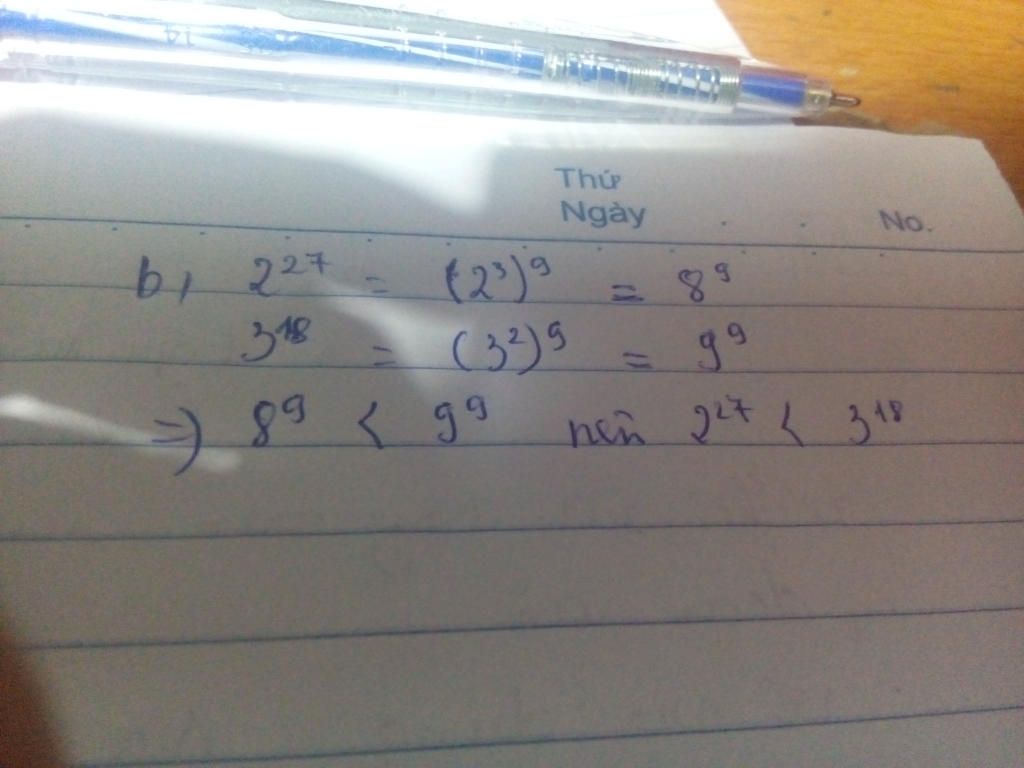 Thứ
Ngày No.
b, 2²⁷ = (2³)⁹ = 8⁹
3¹⁸ = (3²)⁹ = 9⁹
=) 8⁹ < 9⁹ nên 2²⁷ < 3¹⁸